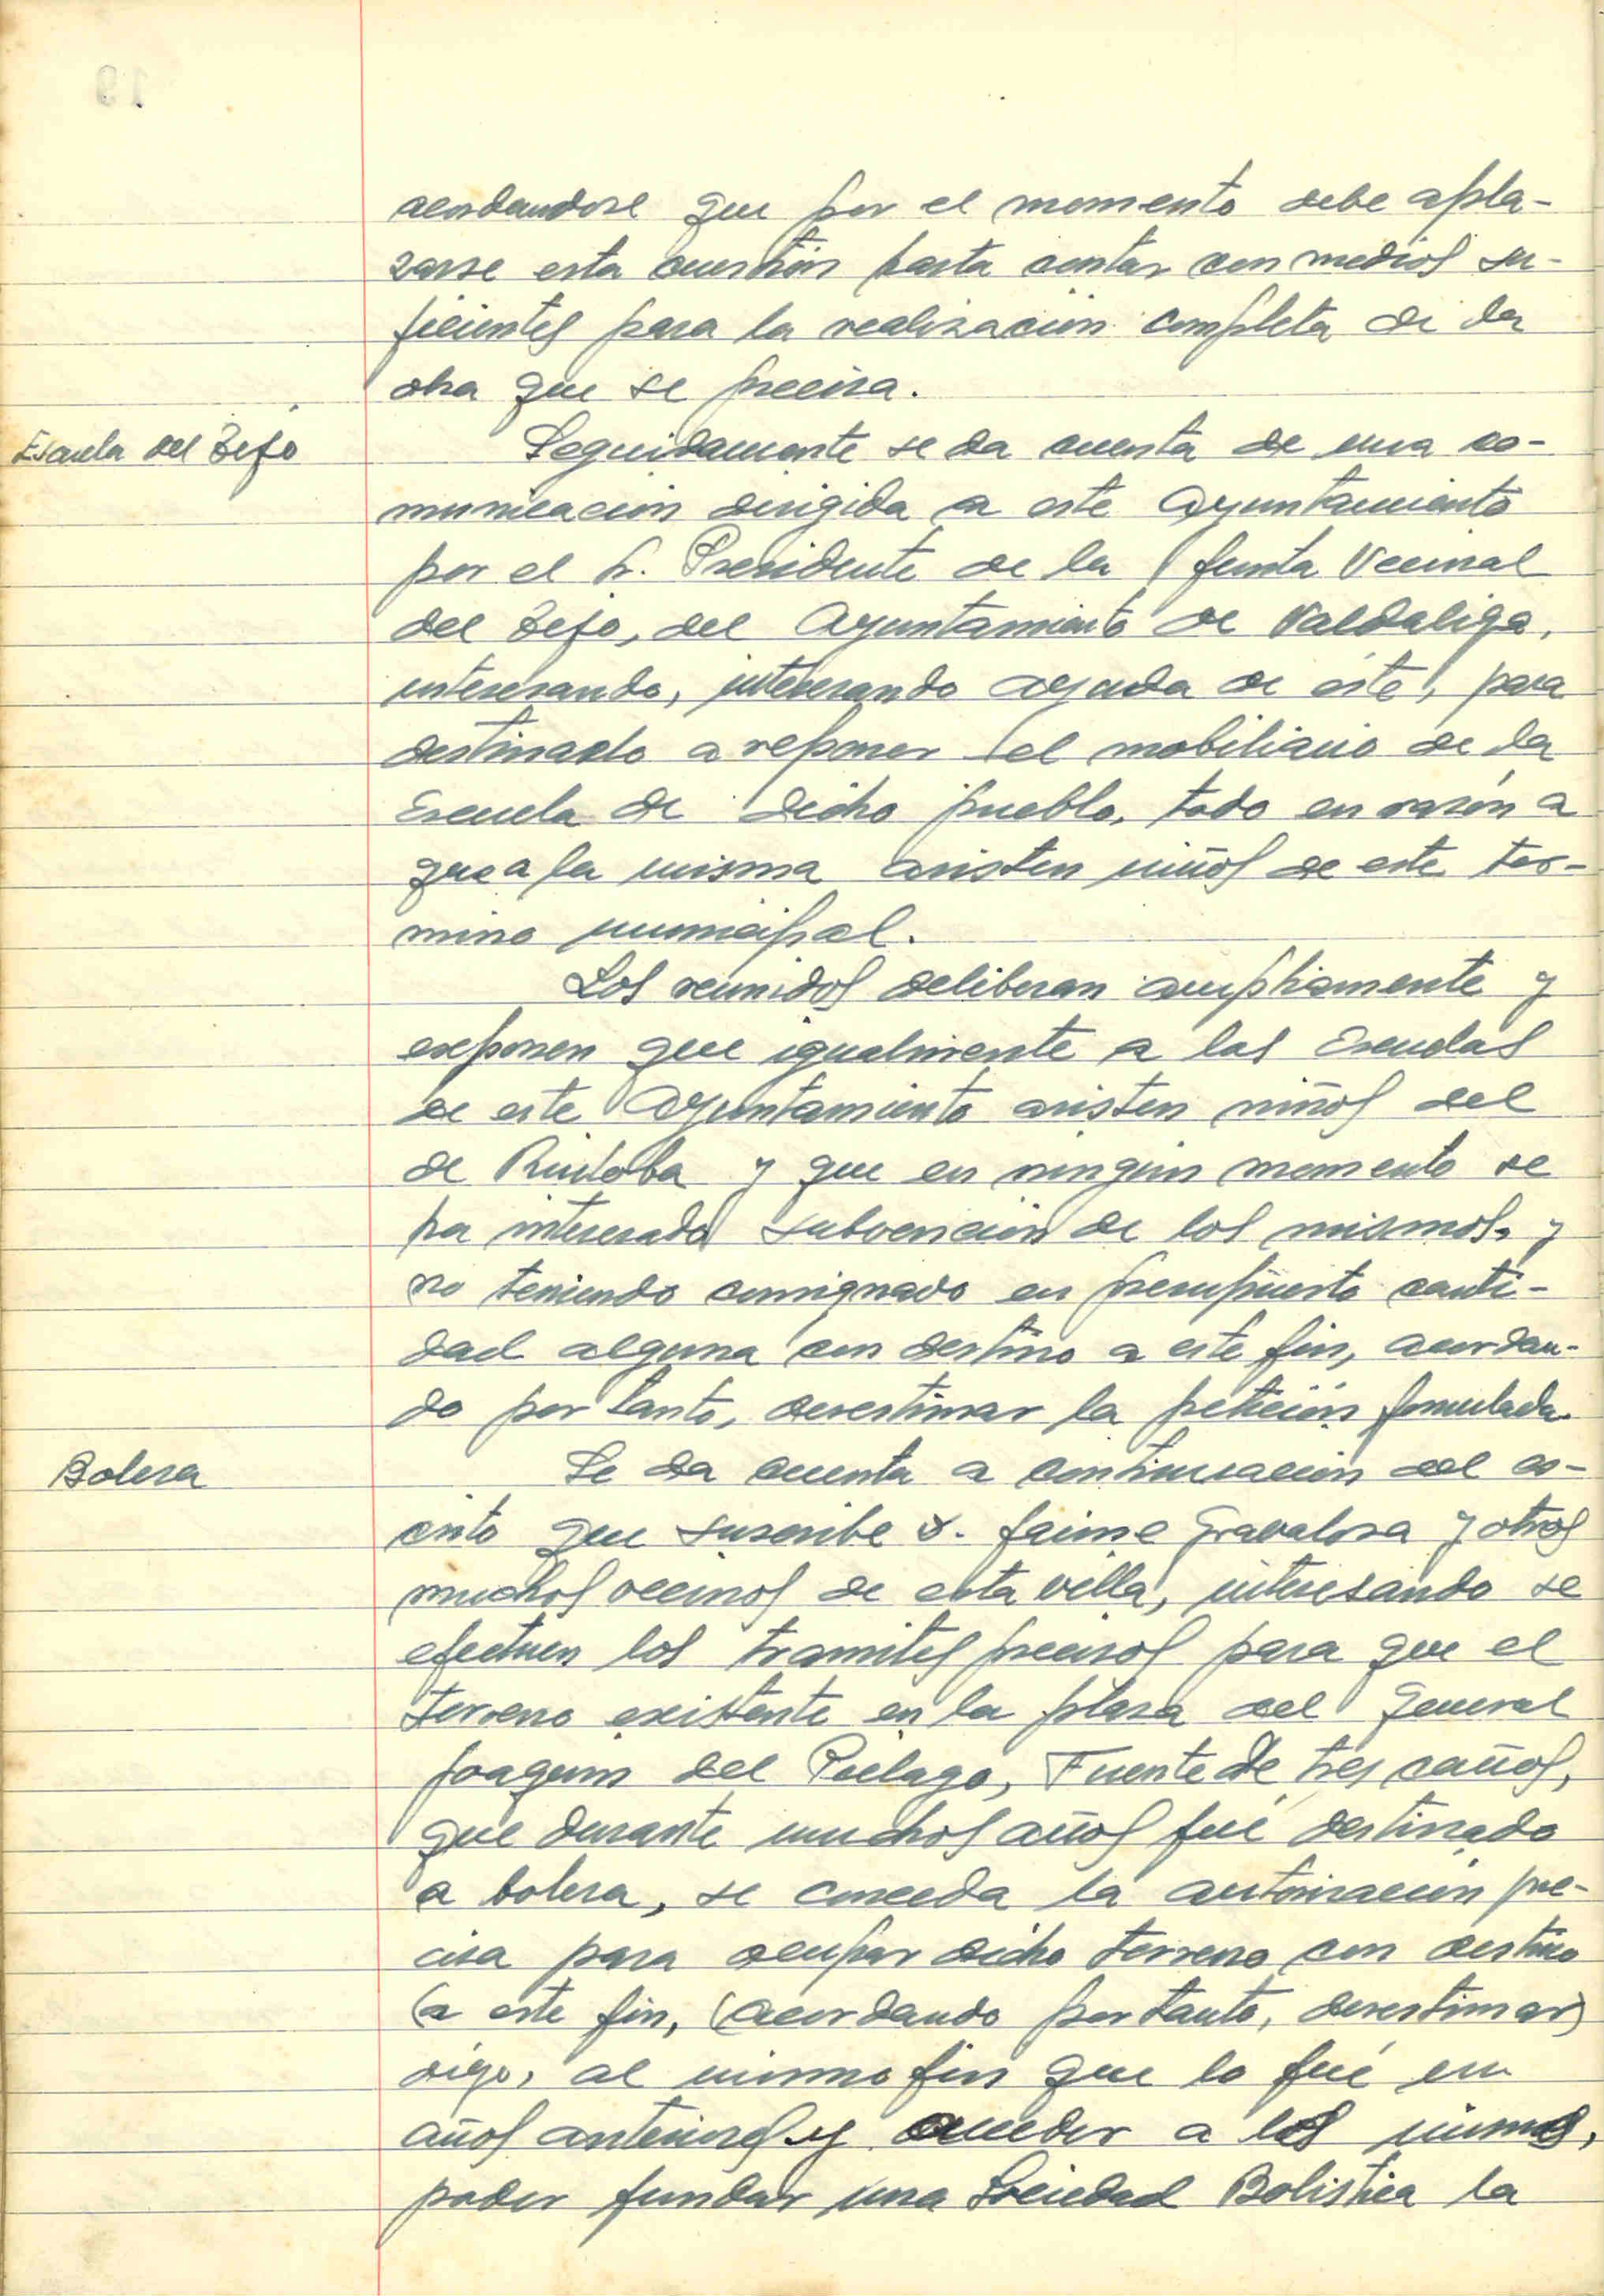 acordandose que por el momento debe apla-
zarse esta cuestión hasta contar con medios su-
ficientes para la realización completa de la
obra que se precisa.
Escuela del Tejo
Seguidamente se da cuenta de una co-
municacion dirigida a este Ayuntamiento
por el Sr. Presidente de la Junta Vecinal
del Tejo, del Ayuntamiento de Valdaliga,
interesando, interesando ayuda de éste, para
destinarlo a reponer el mobiliario de la
Escuela de dicho pueblo, todo en razón a
que a la misma asisten niños de este ter-
mino municipal.
Los reunidos deliberan ampliamente y
exponen que igualmente a las Escuelas
de este Ayuntamiento asisten niños del
de Ruiloba y que en ningún momento se
ha interesado subvención de los mismos, y
no teniendo consignado en presupuesto canti-
dad alguna con destino a este fin, acordan-
do por tanto, desestimar la petición formulada.
Bolera
Se da cuenta a continuación del es-
crito que suscribe D. Jaime Gravalosa y otros
muchos vecinos de esta villa, interesando se
efectuen los tramites precisos para que el
terreno existente en la plaza del General
Joaquin del Pielago, Fuente de tres caños,
que durante muchos años fué destinado
a bolera, se conceda la autorización pre-
cisa para ocupar dicho terreno con destino
a este fin, (acordando por tanto, desestimar)
digo, al mismo fin que lo fué en
años anteriores y acceder a los mismos,
poder fundar una Sociedad Bolistica la